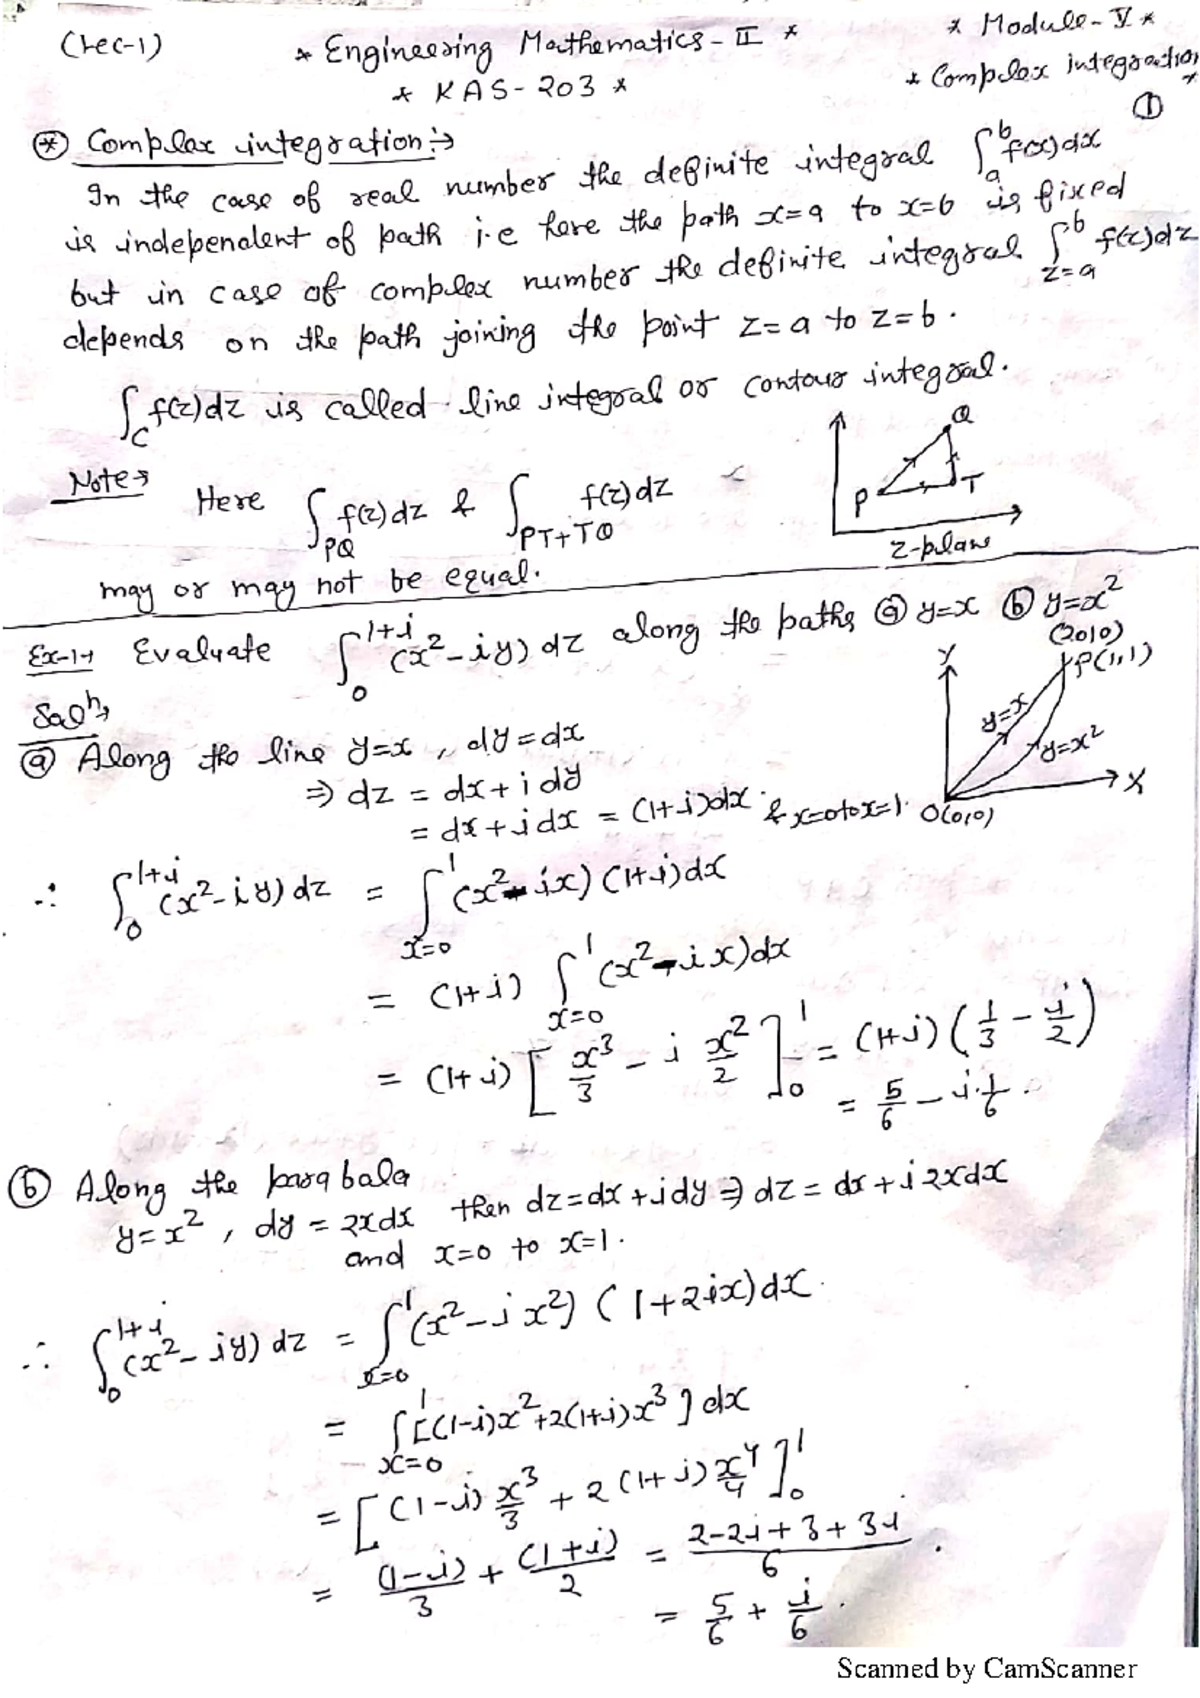 (Lec-1)
* Engineering Mathematics-II *
* Module-V *
* KAS-203 *
* Complex integration *
①
⊛ Complex integration:→
In the case of real number the definite integral ∫_a^b f(x)dx
is independent of path i.e here the path x=a to x=b is fixed
but in case of complex number the definite integral ∫_{z=a}^b f(z)dz
depends on the path joining the point z=a to z=b.
∫_C f(z)dz is called line integral or contour integral.
Note→ Here ∫_{PQ} f(z)dz & ∫_{PT+TQ} f(z)dz
may or may not be equal.
Q
P
T
Z-plane
Ex-1→ Evaluate ∫_0^{1+i} (x²-iy)dz along the paths ⓐ y=x ⓑ y=x²
(2010)
Y
P(1,1)
y=x
y=x²
X
O(0,0)
Solⁿ→
ⓐ Along the line y=x, dy=dx
⇒ dz = dx+idy
= dx+idx = (1+i)dx & x=0 to x=1.
∴ ∫_0^{1+i} (x²-iy)dz = ∫_{x=0}^1 (x²-ix)(1+i)dx
= (1+i) ∫_{x=0}^1 (x²-ix)dx
= (1+i) [x³/3 - i x²/2]_0^1 = (1+i)(1/3 - i/2)
= 5/6 - i·1/6.
ⓑ Along the parabala
y=x², dy=2xdx then dz=dx+idy ⇒ dz=dx+i2xdx
and x=0 to x=1.
∴ ∫_0^{1+i} (x²-iy)dz = ∫_{x=0}^1 (x²-ix²)(1+2ix)dx.
= ∫_{x=0}^1 [(1-i)x²+2(1+i)x³]dx
= [(1-i) x³/3 + 2(1+i) x⁴/4]_0^1
= (1-i)/3 + (1+i)/2 = (2-2i+3+3i)/6.
= 5/6 + i/6.
Scanned by CamScanner